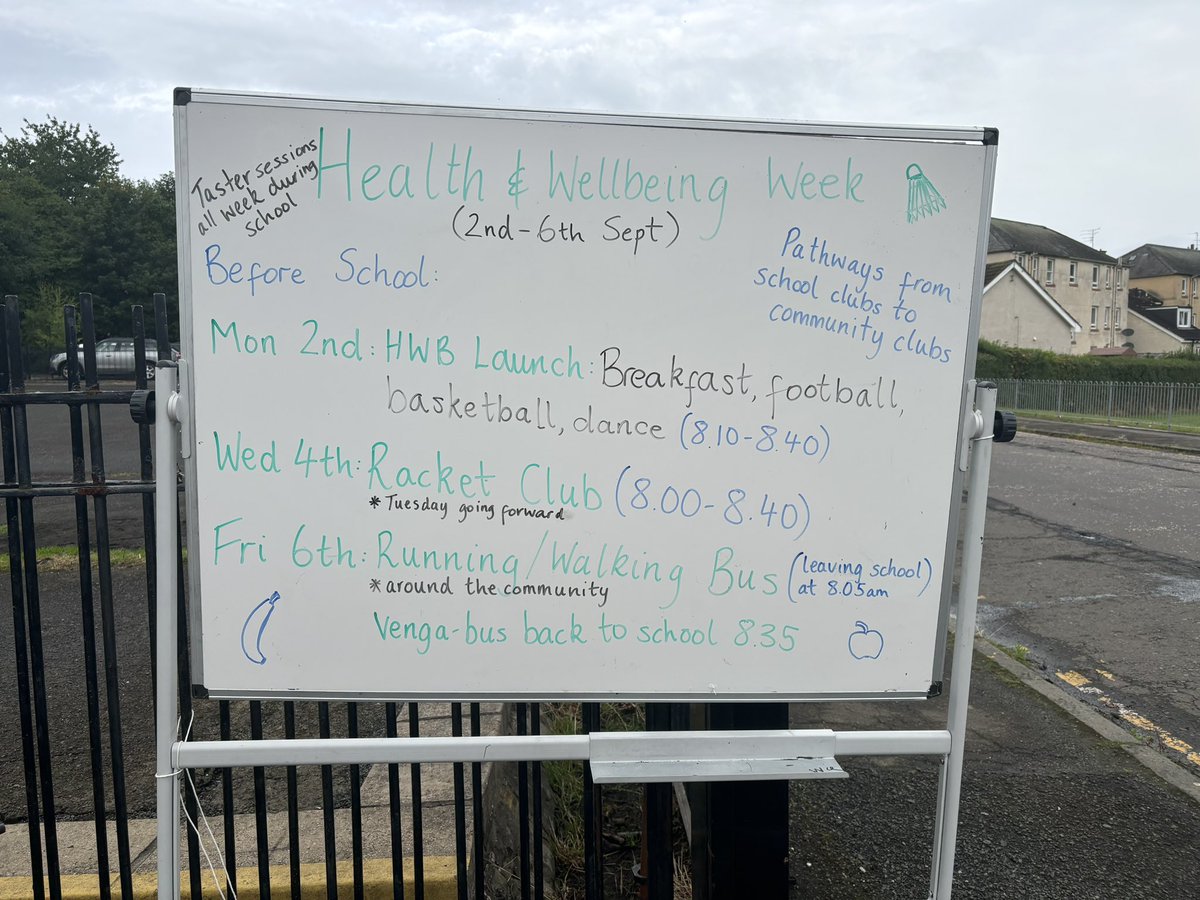 Taster sessions
all week during
school
Health & Wellbeing Week
(2nd-6th Sept)
Pathways from
school clubs to
community clubs
Before School:
Mon 2nd: HWB Launch: Breakfast, football,
basketball, dance (8.10-8.40)
Wed 4th: Racket Club (8.00-8.40)
* Tuesday going forward
Fri 6th: Running/Walking Bus (leaving school)
at 8.05am
* around the community
Venga-bus back to school 8.35